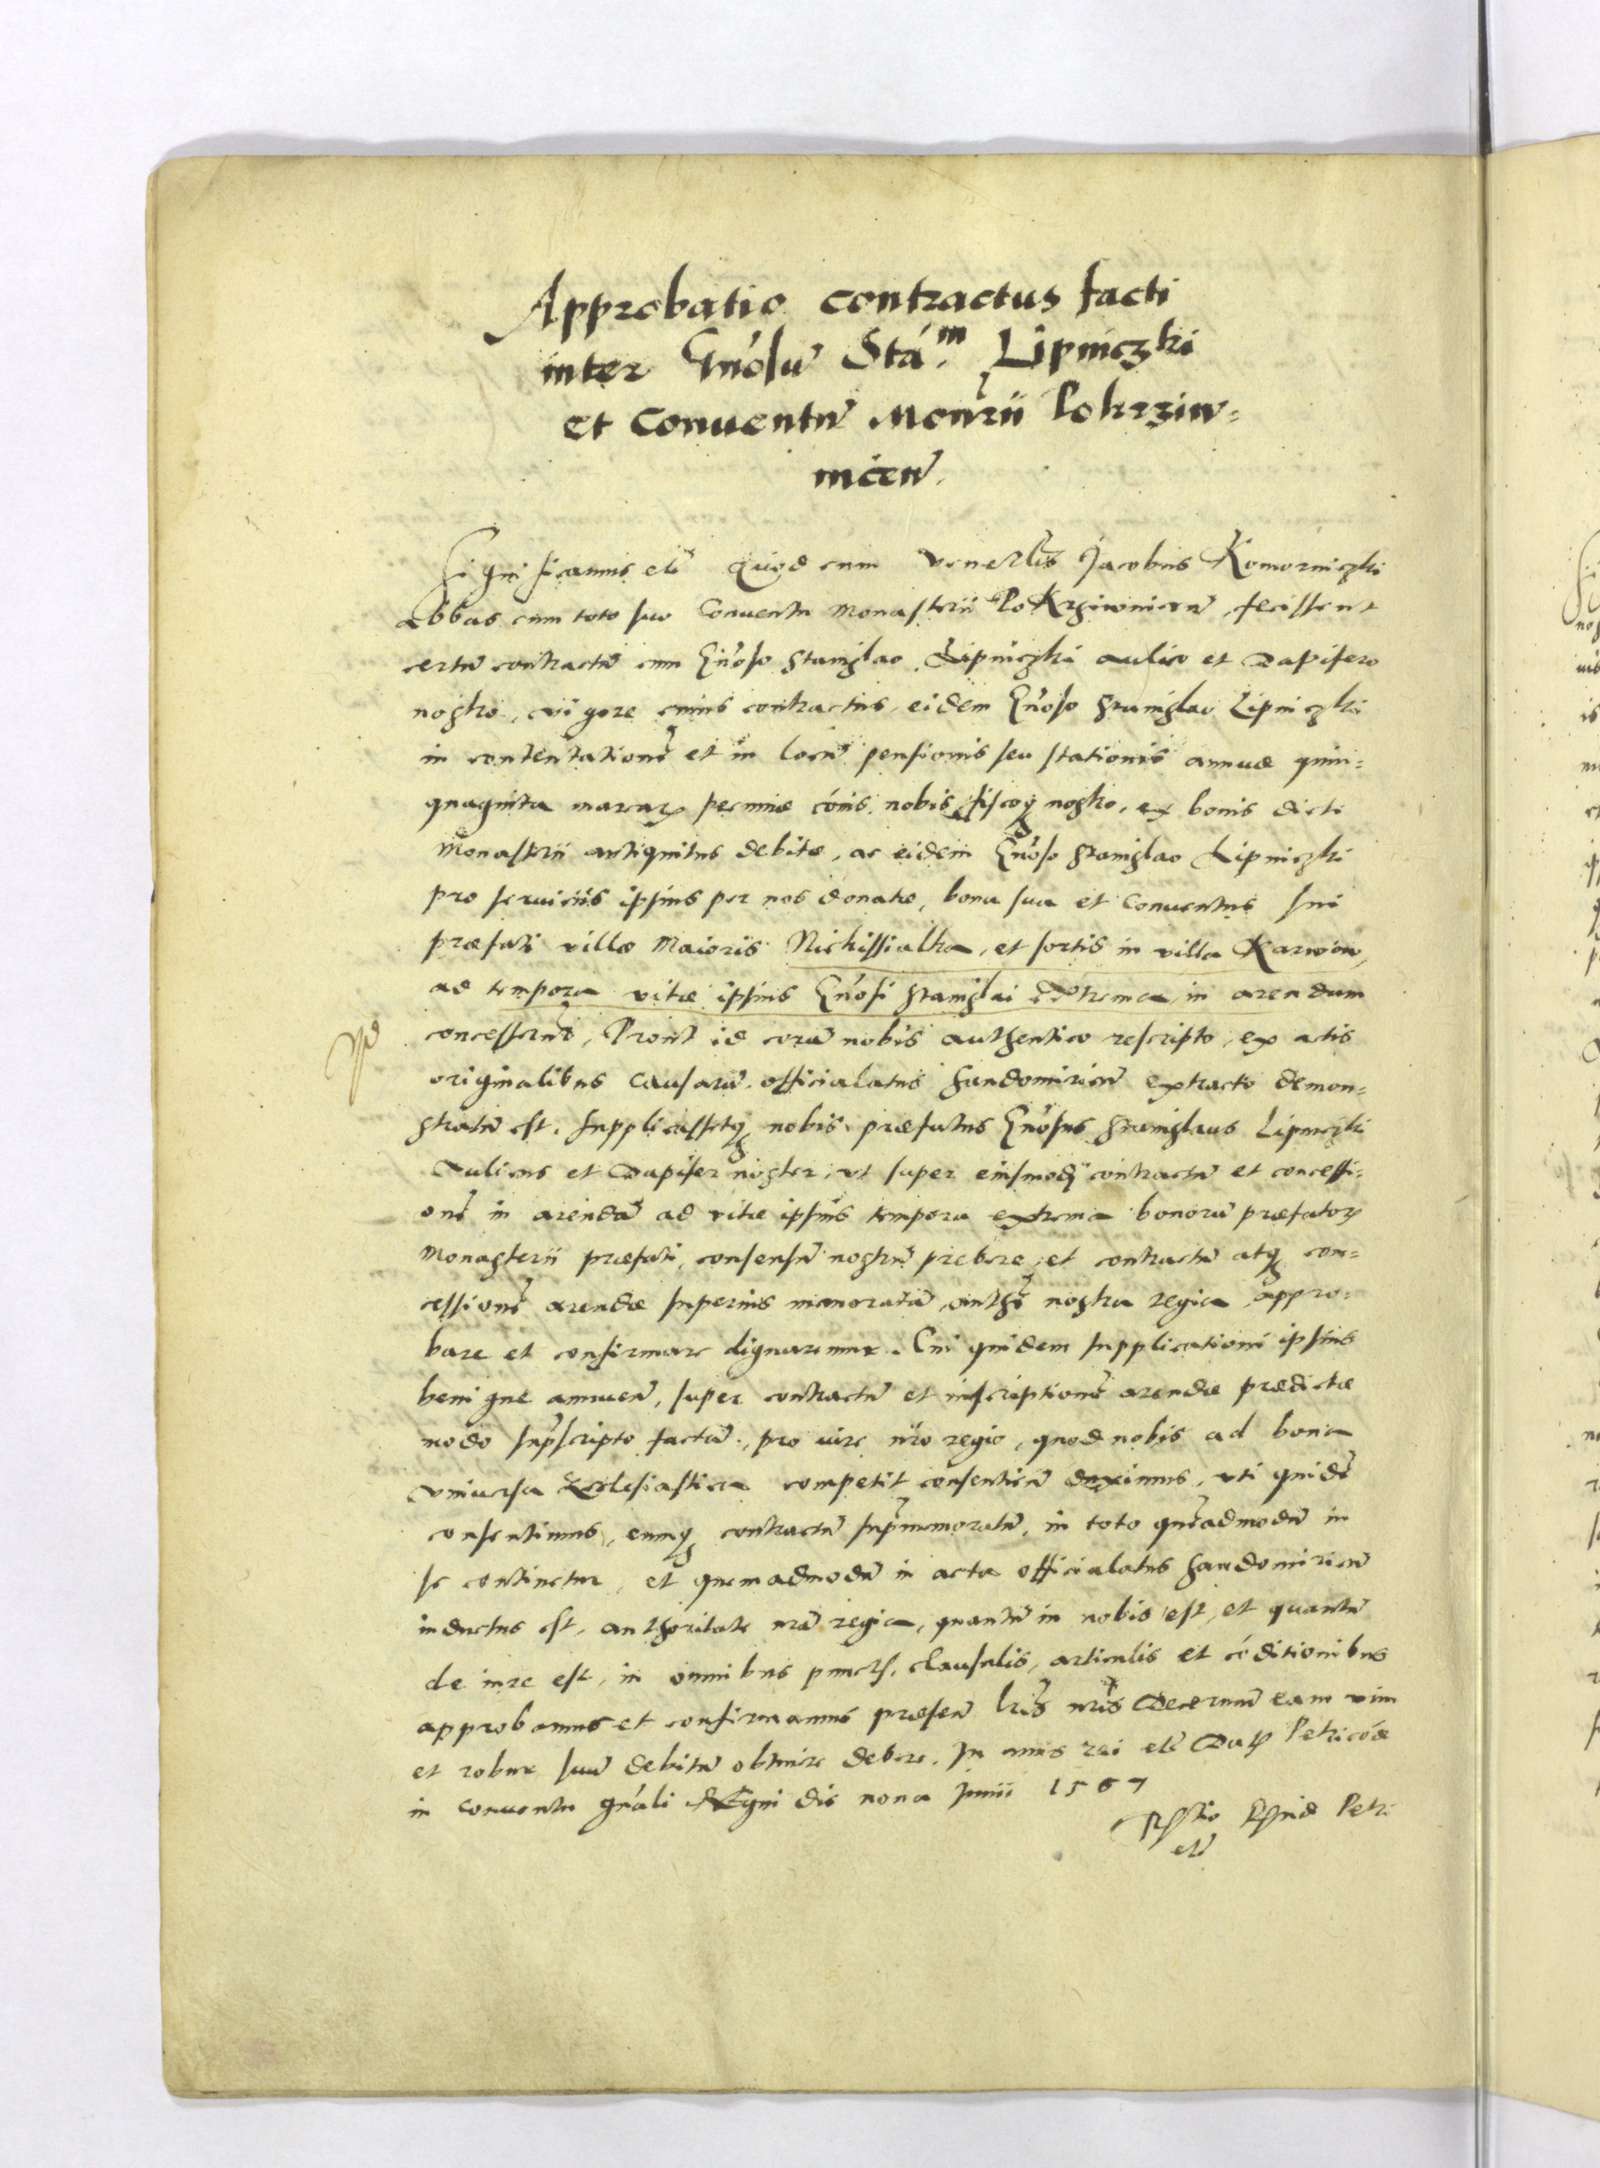 Approbatio contractus facti
inter Gn̄osū Sta.ᵐ Lipniczki
et Conventū Mon̄rii Pokrziw=
nicen̄.
Significamus etc̄ Quod cum Vener̄lis Jacobus Komorniczki
Abbas cum toto suo Conventu Monasterii Pokrziwnicen̄, fecissent
certū contractū cum Gn̄oso Stanislao Lipniczki aulico et Dapifero
nostro, vigore cuius contractus, eidem Gn̄oso Stanislao Lipniczki
in contentationē et in locū pensionis seu stationis annuæ quin=
quaginta marcarꝝ pecuniæ cōis, nobis fiscoqꝫ nostro, ex bonis dicti
Monasterii antiquitus debitæ, ac eidem Gn̄oso Stanislao Lipniczki
pro serviciis ipsius per nos donatæ, bona sua et Conventus sui
præfati villæ Maioris Nickissialka, et sortis in villa Karwow,
ad tempora vitæ ipsius Gn̄osi Stanislai extrema in arendam
concesserūt, Prout id corā nobis authentico rescripto, ex actis
originalibus Causarū officialatus Sandomiricn̄ extracto demon=
stratū est. Supplicassetqꝫ nobis præfatus Gn̄osus Stanislaus Lipniczki
Aulicus et Dapifer noster, vt super eiusmodi contractū et concessi=
onē in arendā ad vitæ ipsius tempora extrema bonorū præfatorꝝ
Monasterii præfati, consensū nostrū prebere, et contractū atqꝫ con=
cessionē arendæ superius memoratā, authē nostra regia appro=
bare et confirmare dignaremur. Cui quidem supplicationi ipsius
benigne annuen̄, super contractū et inscriptionē arendæ prædictæ
modo sup̄scripto factū, pro iure nr̄o regio, quod nobis ad bona
Vniuersa Ecclesiastica competit consentien̄ duximus, vti quidē
consentimus, eumqꝫ contractū sup̄memoratū, in toto quēadmodū in
se continetur, et quemadmodū in acta officialatus Sandomiricn̄
inductus est, authoritate nr̄a regia, quantū in nobis est, et quantū
de iure est, in omnibus punctis, clausulis, articulis et cōditionibus
approbamus et confirmamus præsen̄ lr̄is nr̄is Decernen̄ eam vim
et robur suū debitū obtinere debere. In cuius rei etc̄ Datꝭ Petricoae
in Conventu gn̄ali Regni die nona Junii 1567
Petri
etc̄